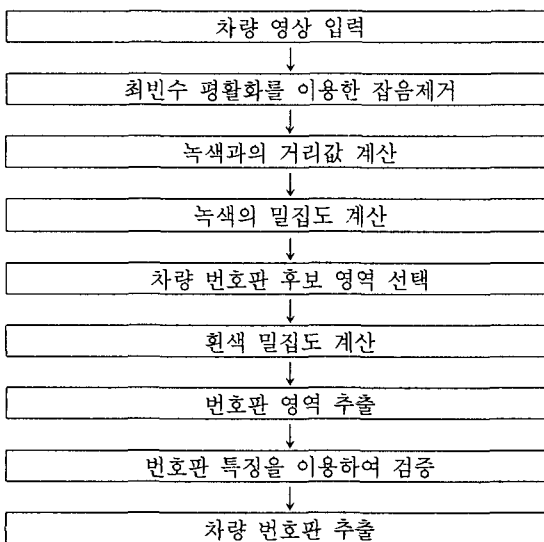 차량 영상 입력
최빈수 평활화를 이용한 잡음제거
녹색과의 거리값 계산
녹색의 밀집도 계산
차량 번호판 후보 영역 선택
흰색 밀집도 계산
번호판 영역 추출
번호판 특징을 이용하여 검증
차량 번호판 추출